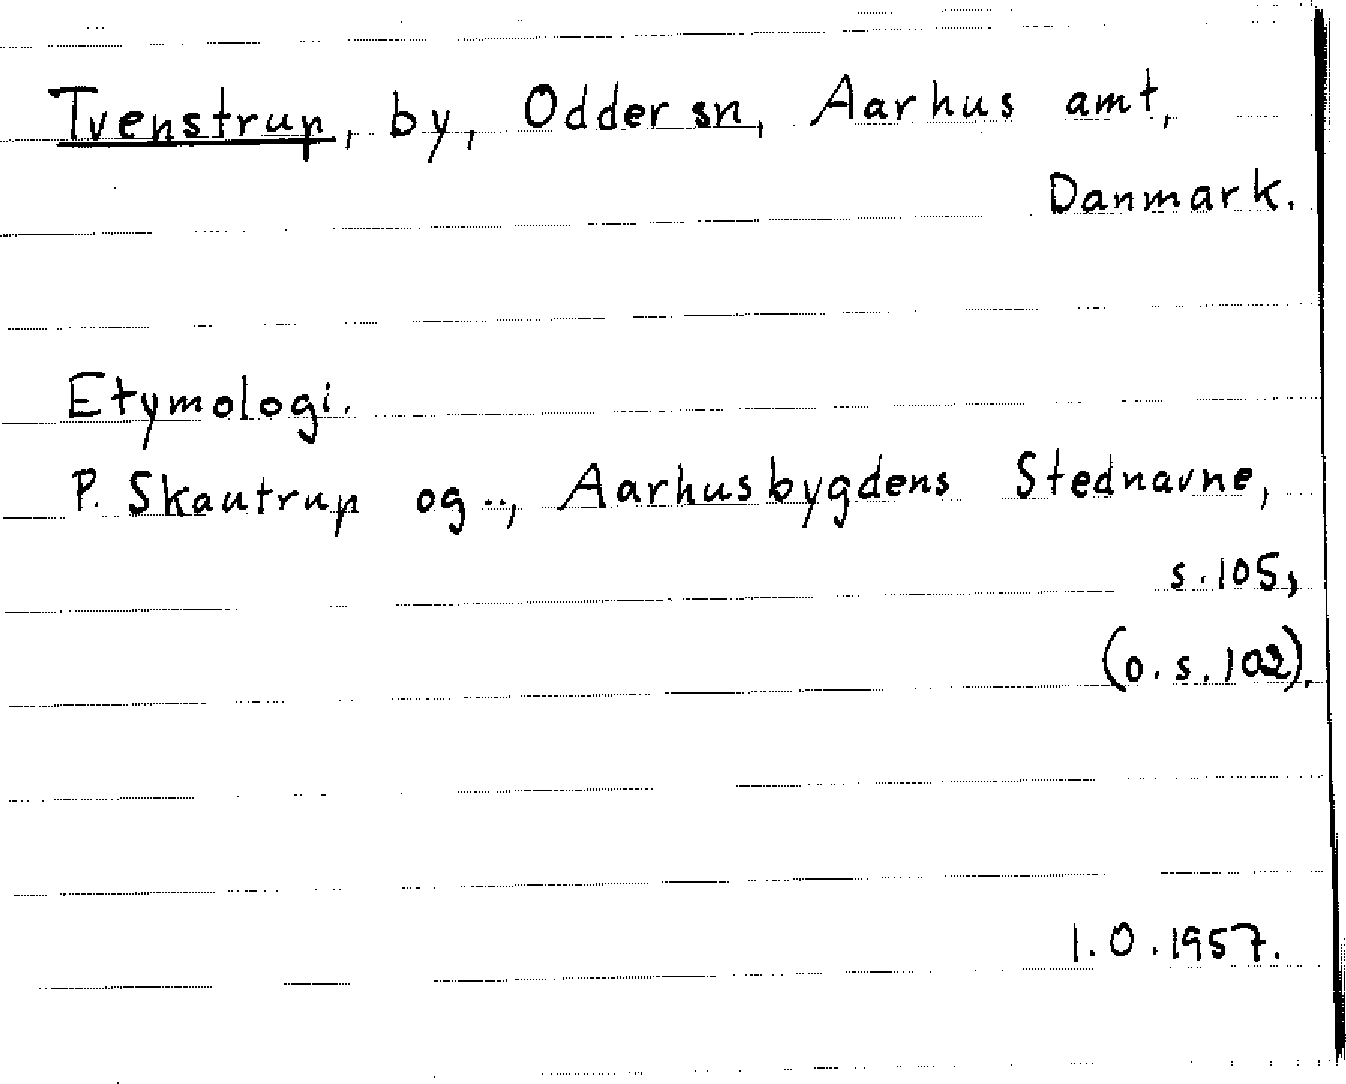 Tvenstrup, by, Odder sn, Aarhus amt,
Danmark.
Etymologi.
P. Skautrup og.., Aarhusbygdens Stednavne,
s. 105,
(o. s. 102).
1.O.1957.